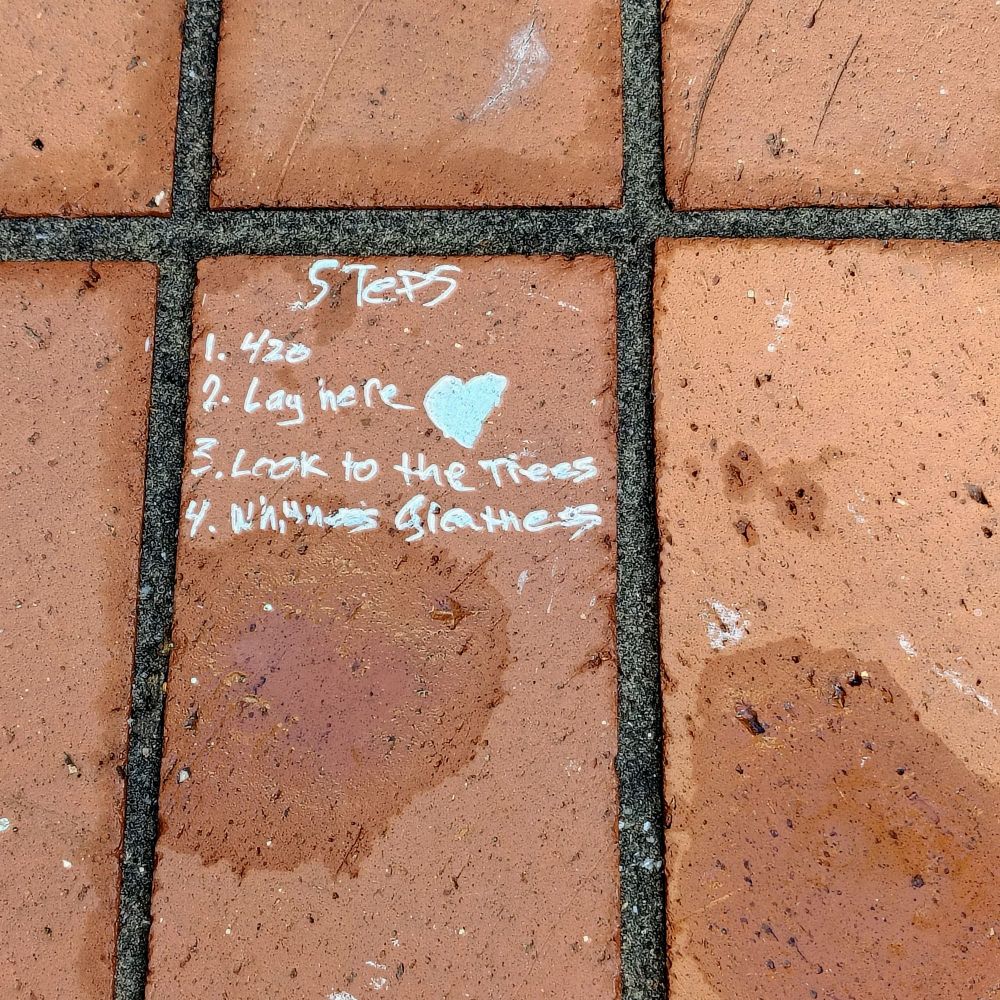 STePS
1. 420
2. Lay here
3. LOOK to the Trees
4. Greatness